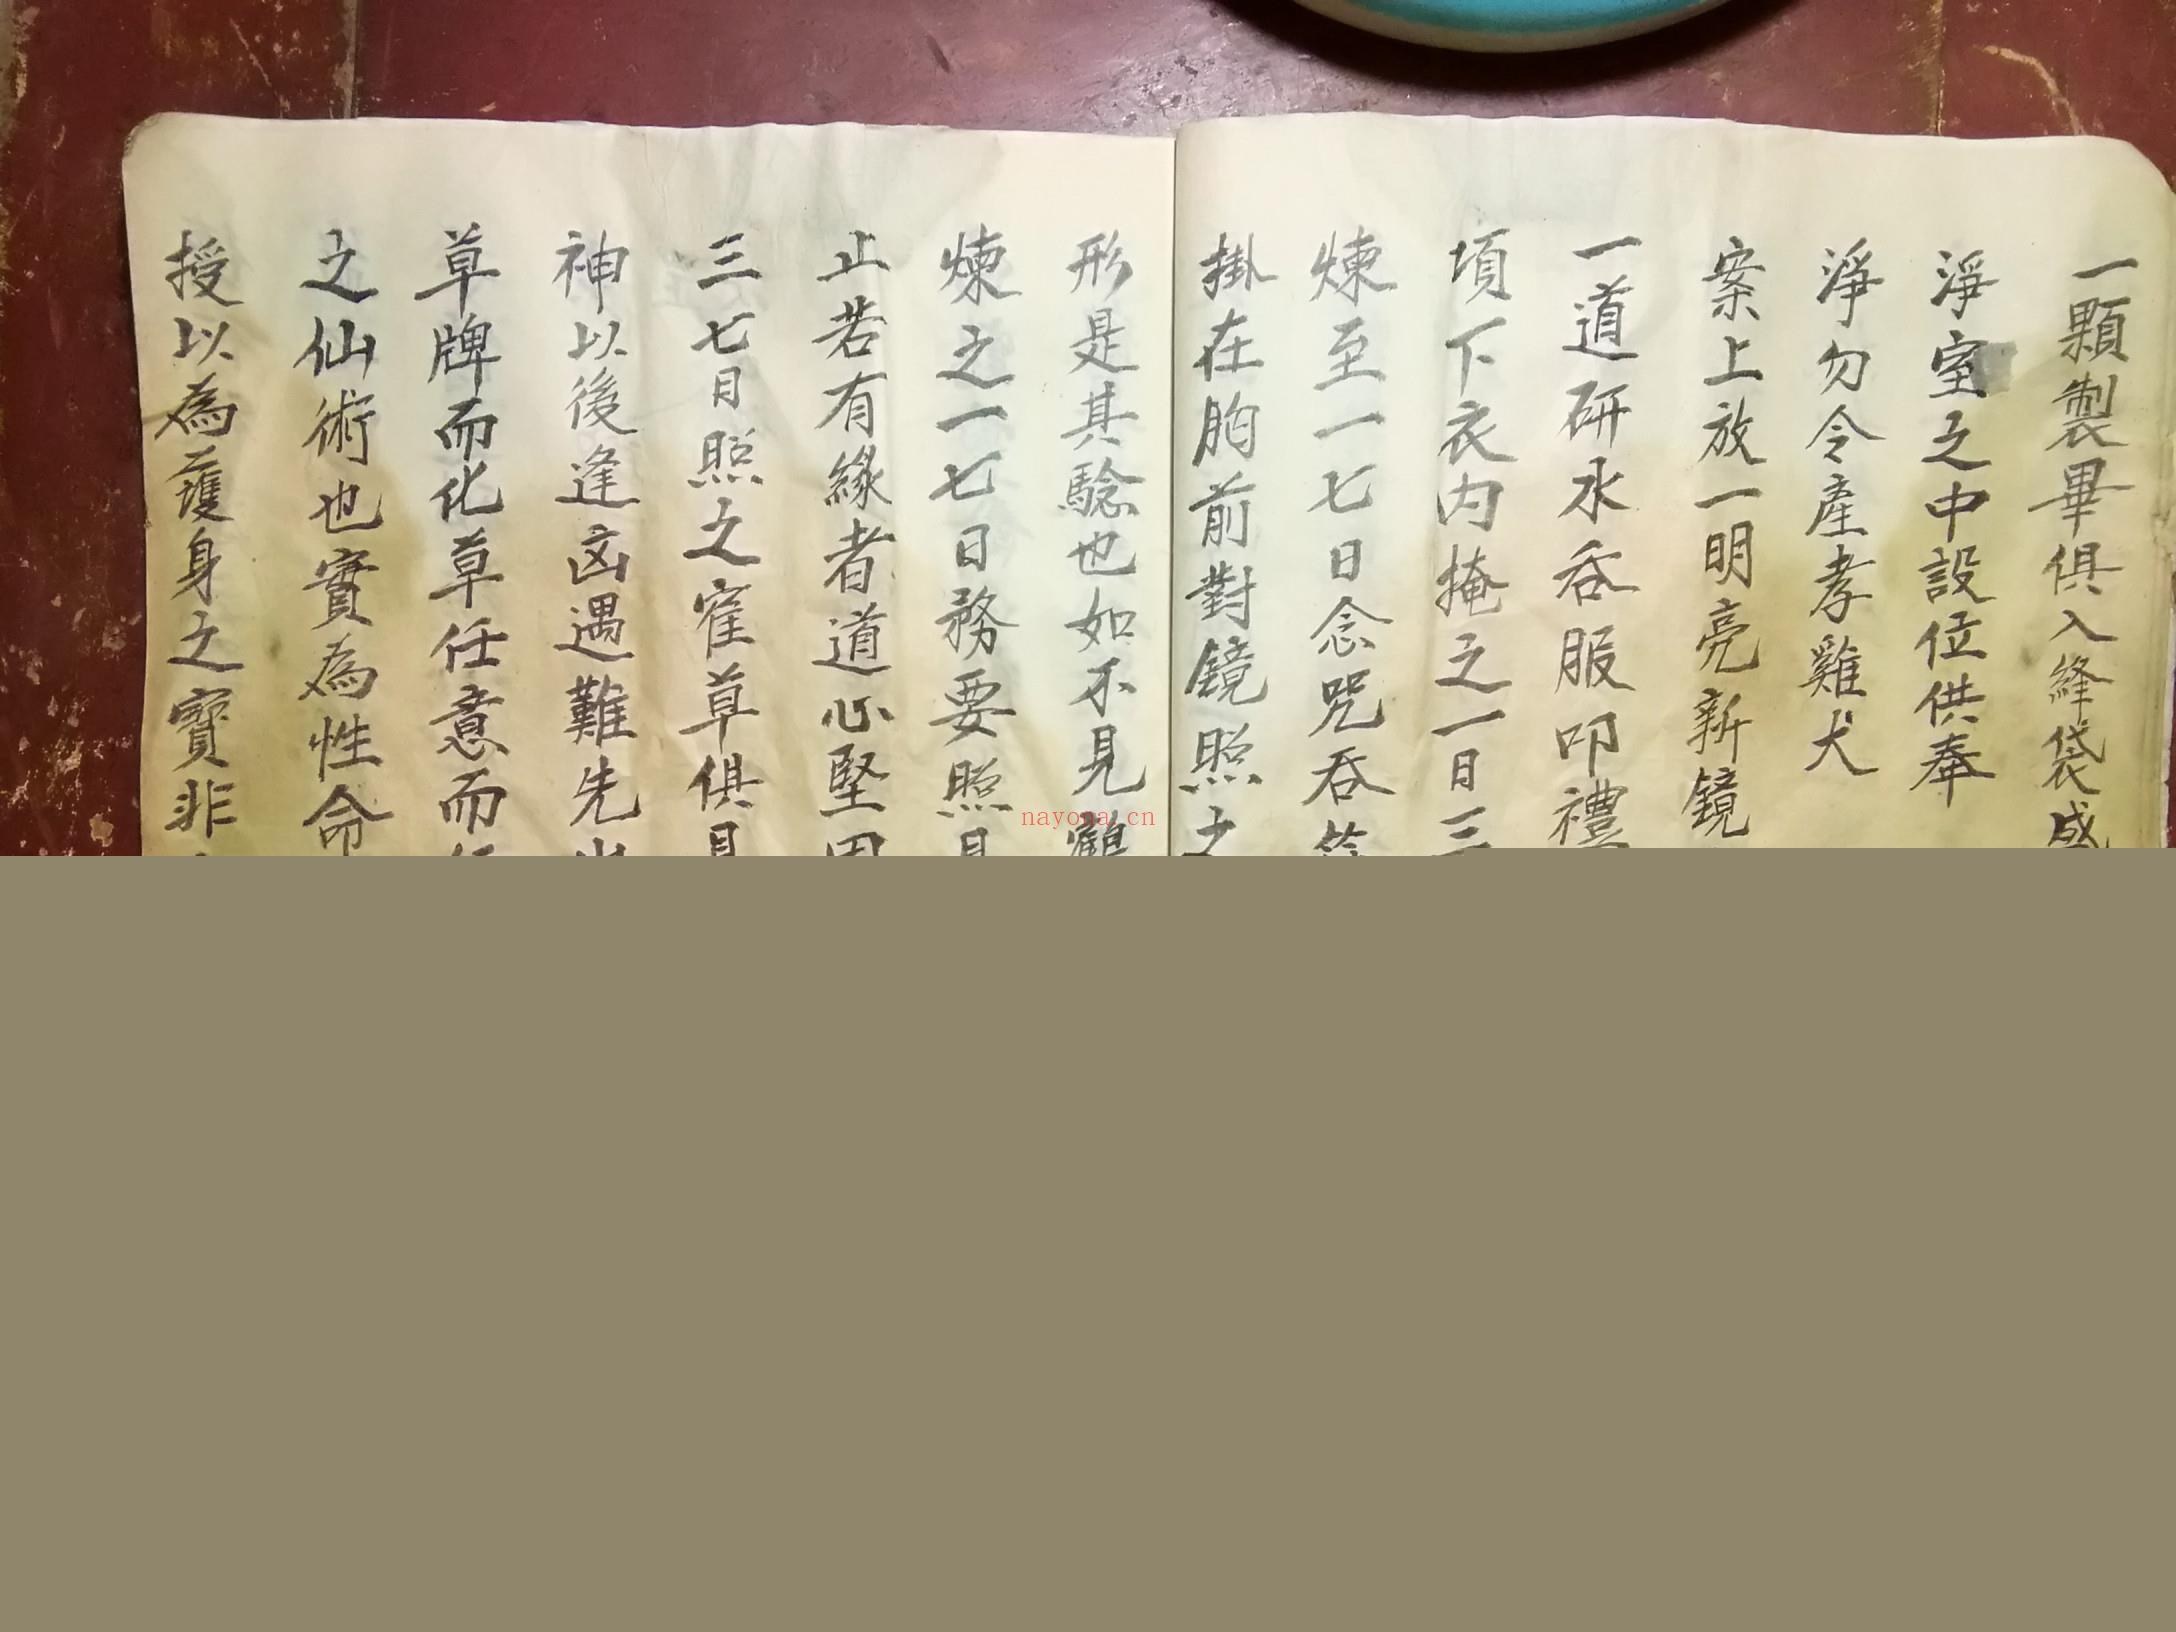 一顆製畢俱入絳袋盛
淨室之中設位供奉
淨勿令產孝雞犬
案上放一明亮新鏡
一道研水吞服叩禮
項下衣内掩之一日三
煉至一七日念咒吞
掛在胸前對鏡照之
形是其驗也如不見
煉之一七日務要照
止若有緣者道心堅
三七日照之寉草俱
神以後逢凶遇難先
草牌而化草任意而
之仙術也實為性命
授以為護身之寶非
nayona.cn